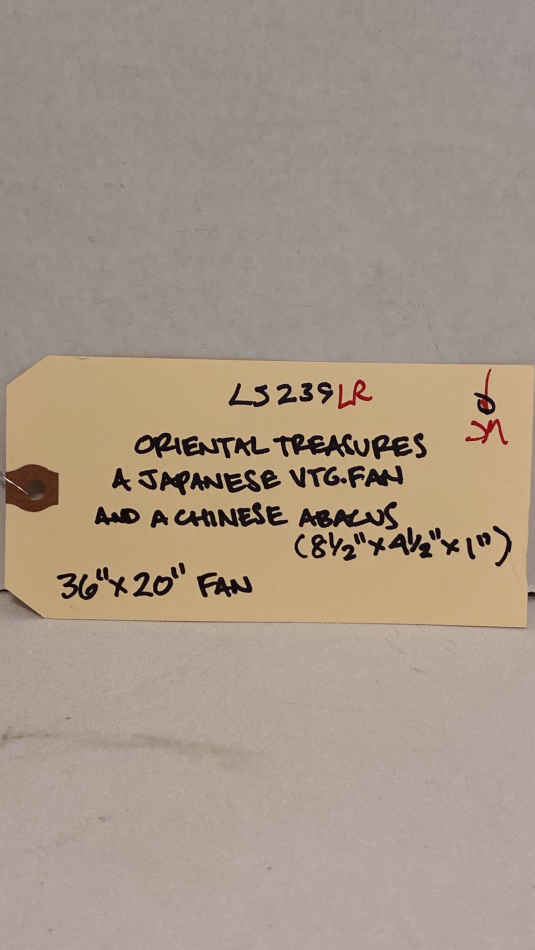 LS239LR
ORIENTAL TREASURES
A JAPANESE VTG. FAN
AND A CHINESE ABACUS
(8½"x4½"x1")
36"x20" FAN